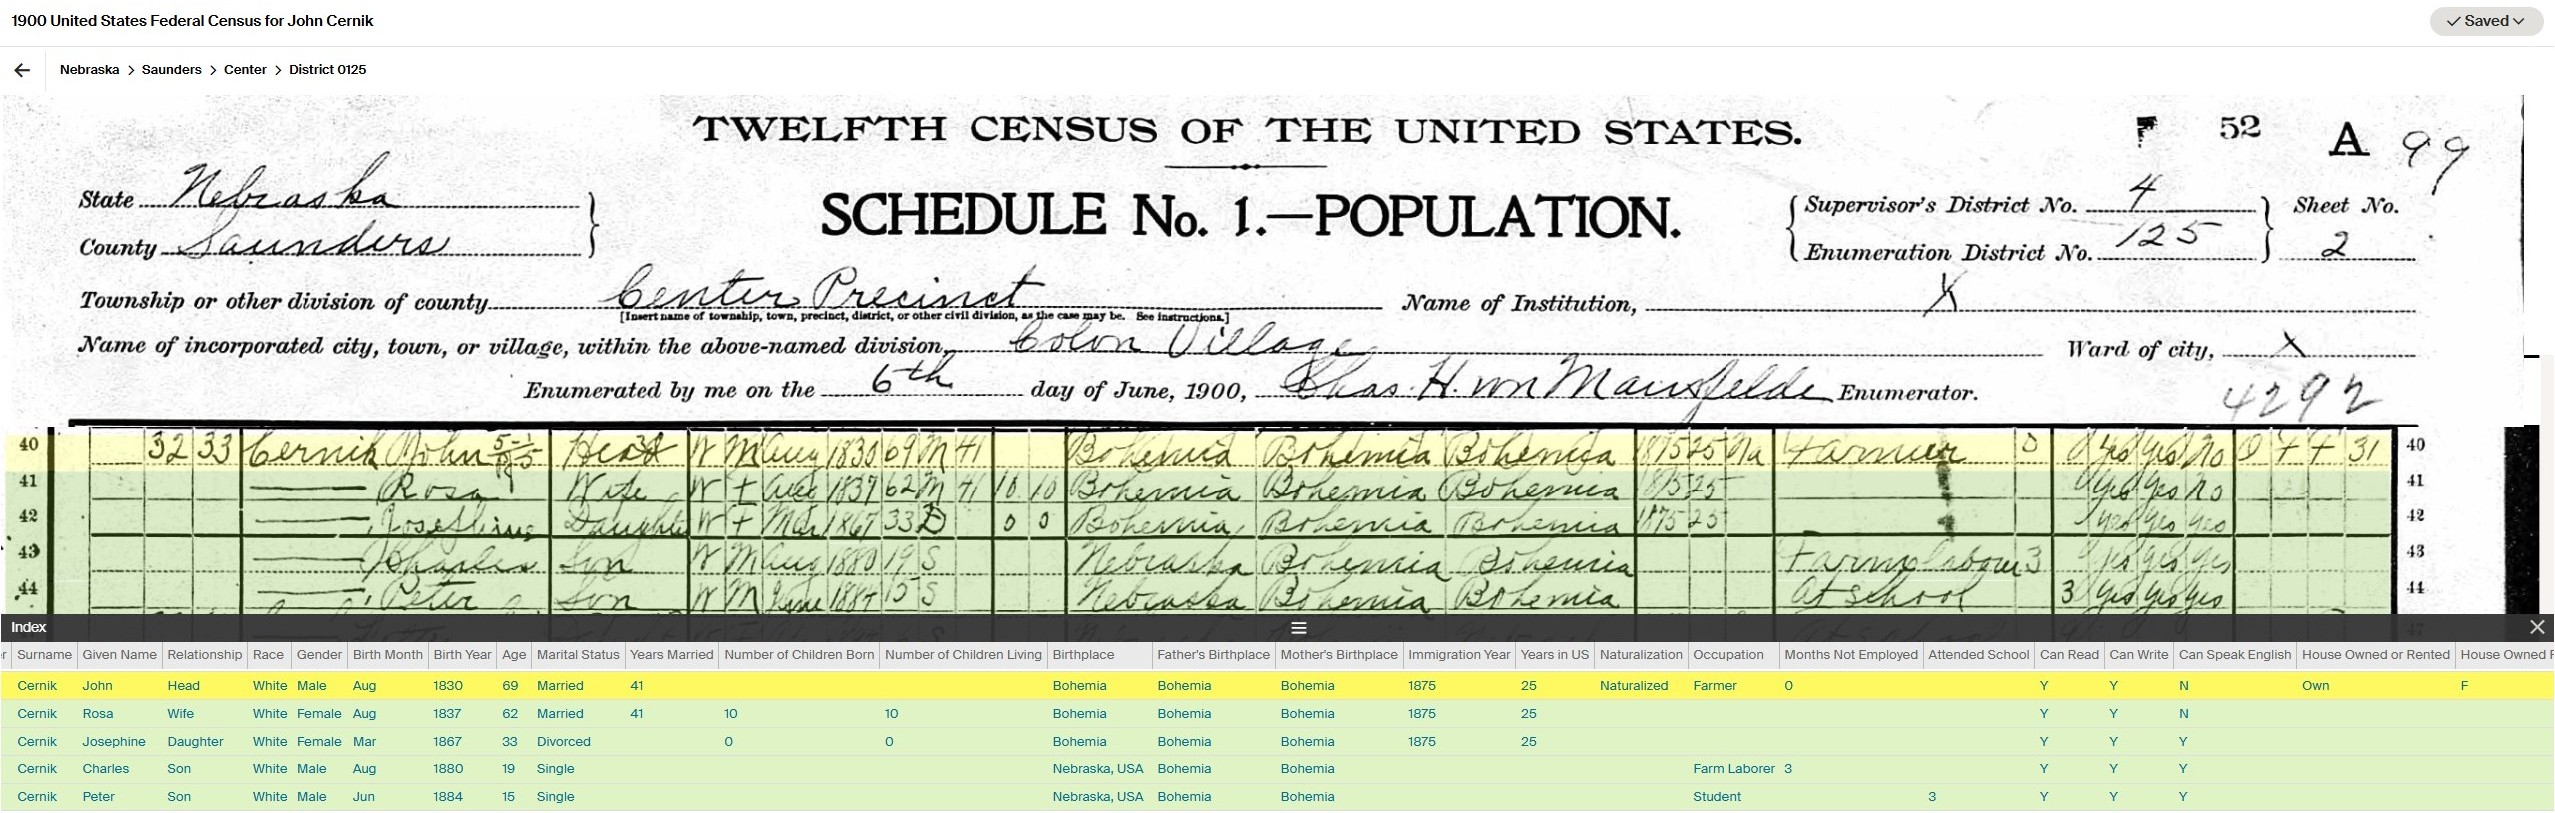 1900 United States Federal Census for John Cernik
Saved
Nebraska > Saunders > Center > District 0125
TWELFTH CENSUS OF THE UNITED STATES.
52 A 99
State Nebraska
County Saunders
SCHEDULE No. 1.—POPULATION.
Supervisor's District No. 4
Enumeration District No. 125
Sheet No.
2
Township or other division of county Center Precinct
[Insert name of township, town, precinct, district, or other civil division, as the case may be. See instructions.]
Name of Institution, X
Name of incorporated city, town, or village, within the above-named division, Colon Village
Ward of city, X
Enumerated by me on the 6th day of June, 1900, Chas. H. von Mansfelde Enumerator.
4292
40 32 33 Cernik John Head W M Aug 1830 69 M 41 Bohemia Bohemia Bohemia 1875 25 Na Farmer 0 Yes Yes No O F F 31 40
41 Rosa Wife W F Aug 1837 62 M 41 10 10 Bohemia Bohemia Bohemia 1875 25 Yes Yes No 41
42 Josephine Daughter W F Mar 1867 33 D 0 0 Bohemia Bohemia Bohemia 1875 25 Yes Yes Yes 42
43 Charles Son W M Aug 1880 19 S Nebraska Bohemia Bohemia Farm labour 3 Yes Yes Yes 43
44 Peter Son W M June 1884 15 S Nebraska Bohemia Bohemia At school 3 Yes Yes Yes 44
Index
Surname Given Name Relationship Race Gender Birth Month Birth Year Age Marital Status Years Married Number of Children Born Number of Children Living Birthplace Father's Birthplace Mother's Birthplace Immigration Year Years in US Naturalization Occupation Months Not Employed Attended School Can Read Can Write Can Speak English House Owned or Rented House Owned F
Cernik John Head White Male Aug 1830 69 Married 41 Bohemia Bohemia Bohemia 1875 25 Naturalized Farmer 0 Y Y N Own F
Cernik Rosa Wife White Female Aug 1837 62 Married 41 10 10 Bohemia Bohemia Bohemia 1875 25 Y Y N
Cernik Josephine Daughter White Female Mar 1867 33 Divorced 0 0 Bohemia Bohemia Bohemia 1875 25 Y Y Y
Cernik Charles Son White Male Aug 1880 19 Single Nebraska, USA Bohemia Bohemia Farm Laborer 3 Y Y Y
Cernik Peter Son White Male Jun 1884 15 Single Nebraska, USA Bohemia Bohemia Student 3 Y Y Y